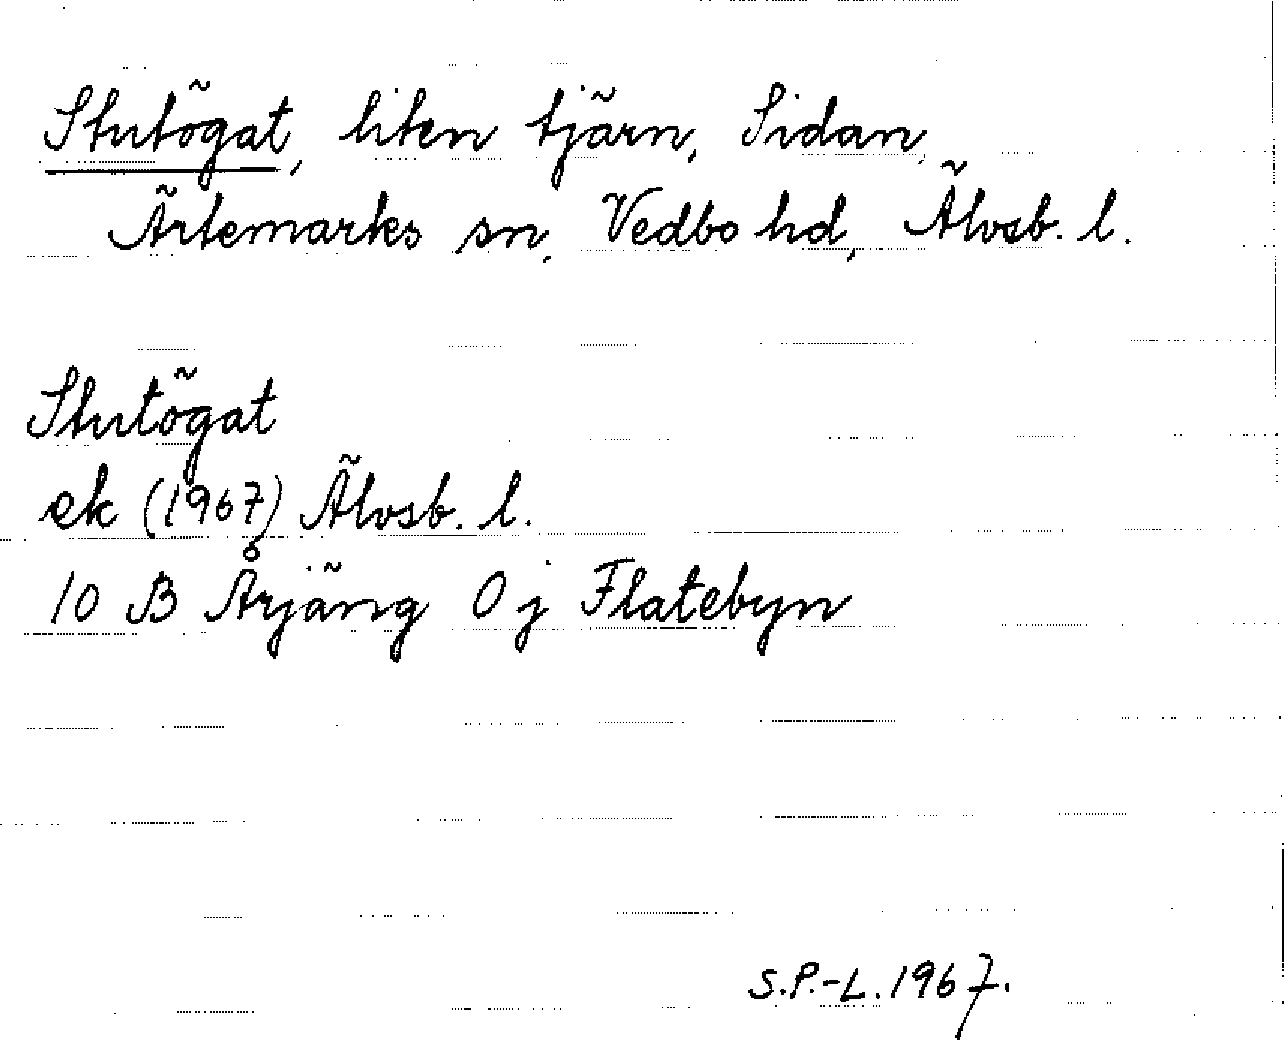 Stutögat, liten tjärn, Sidan,
Ärtemarks sn, Vedbo hd, Älvsb. l.
Stutögat
ek (1967) Älvsb. l.
10 B Årjäng 0 j Flatebyn
S.P.-L. 1967.